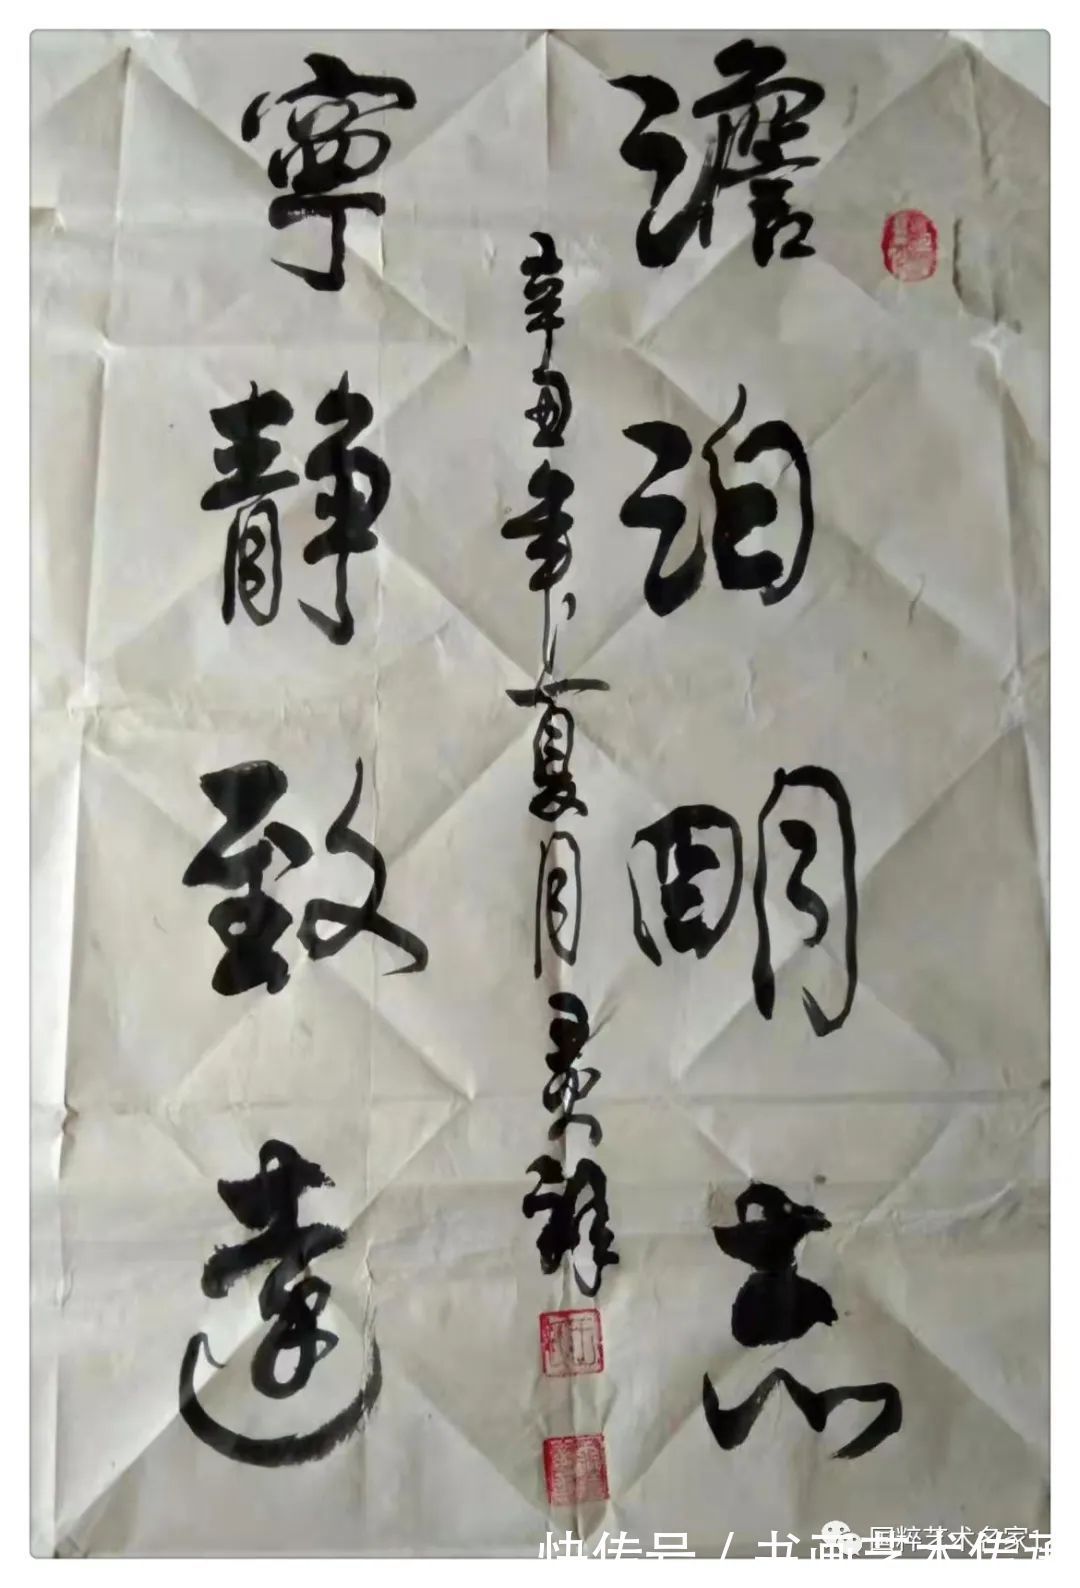 澹泊明志
辛丑年夏月
祥
寧靜致遠
国粹艺术名家
快传号 / 书画艺术传